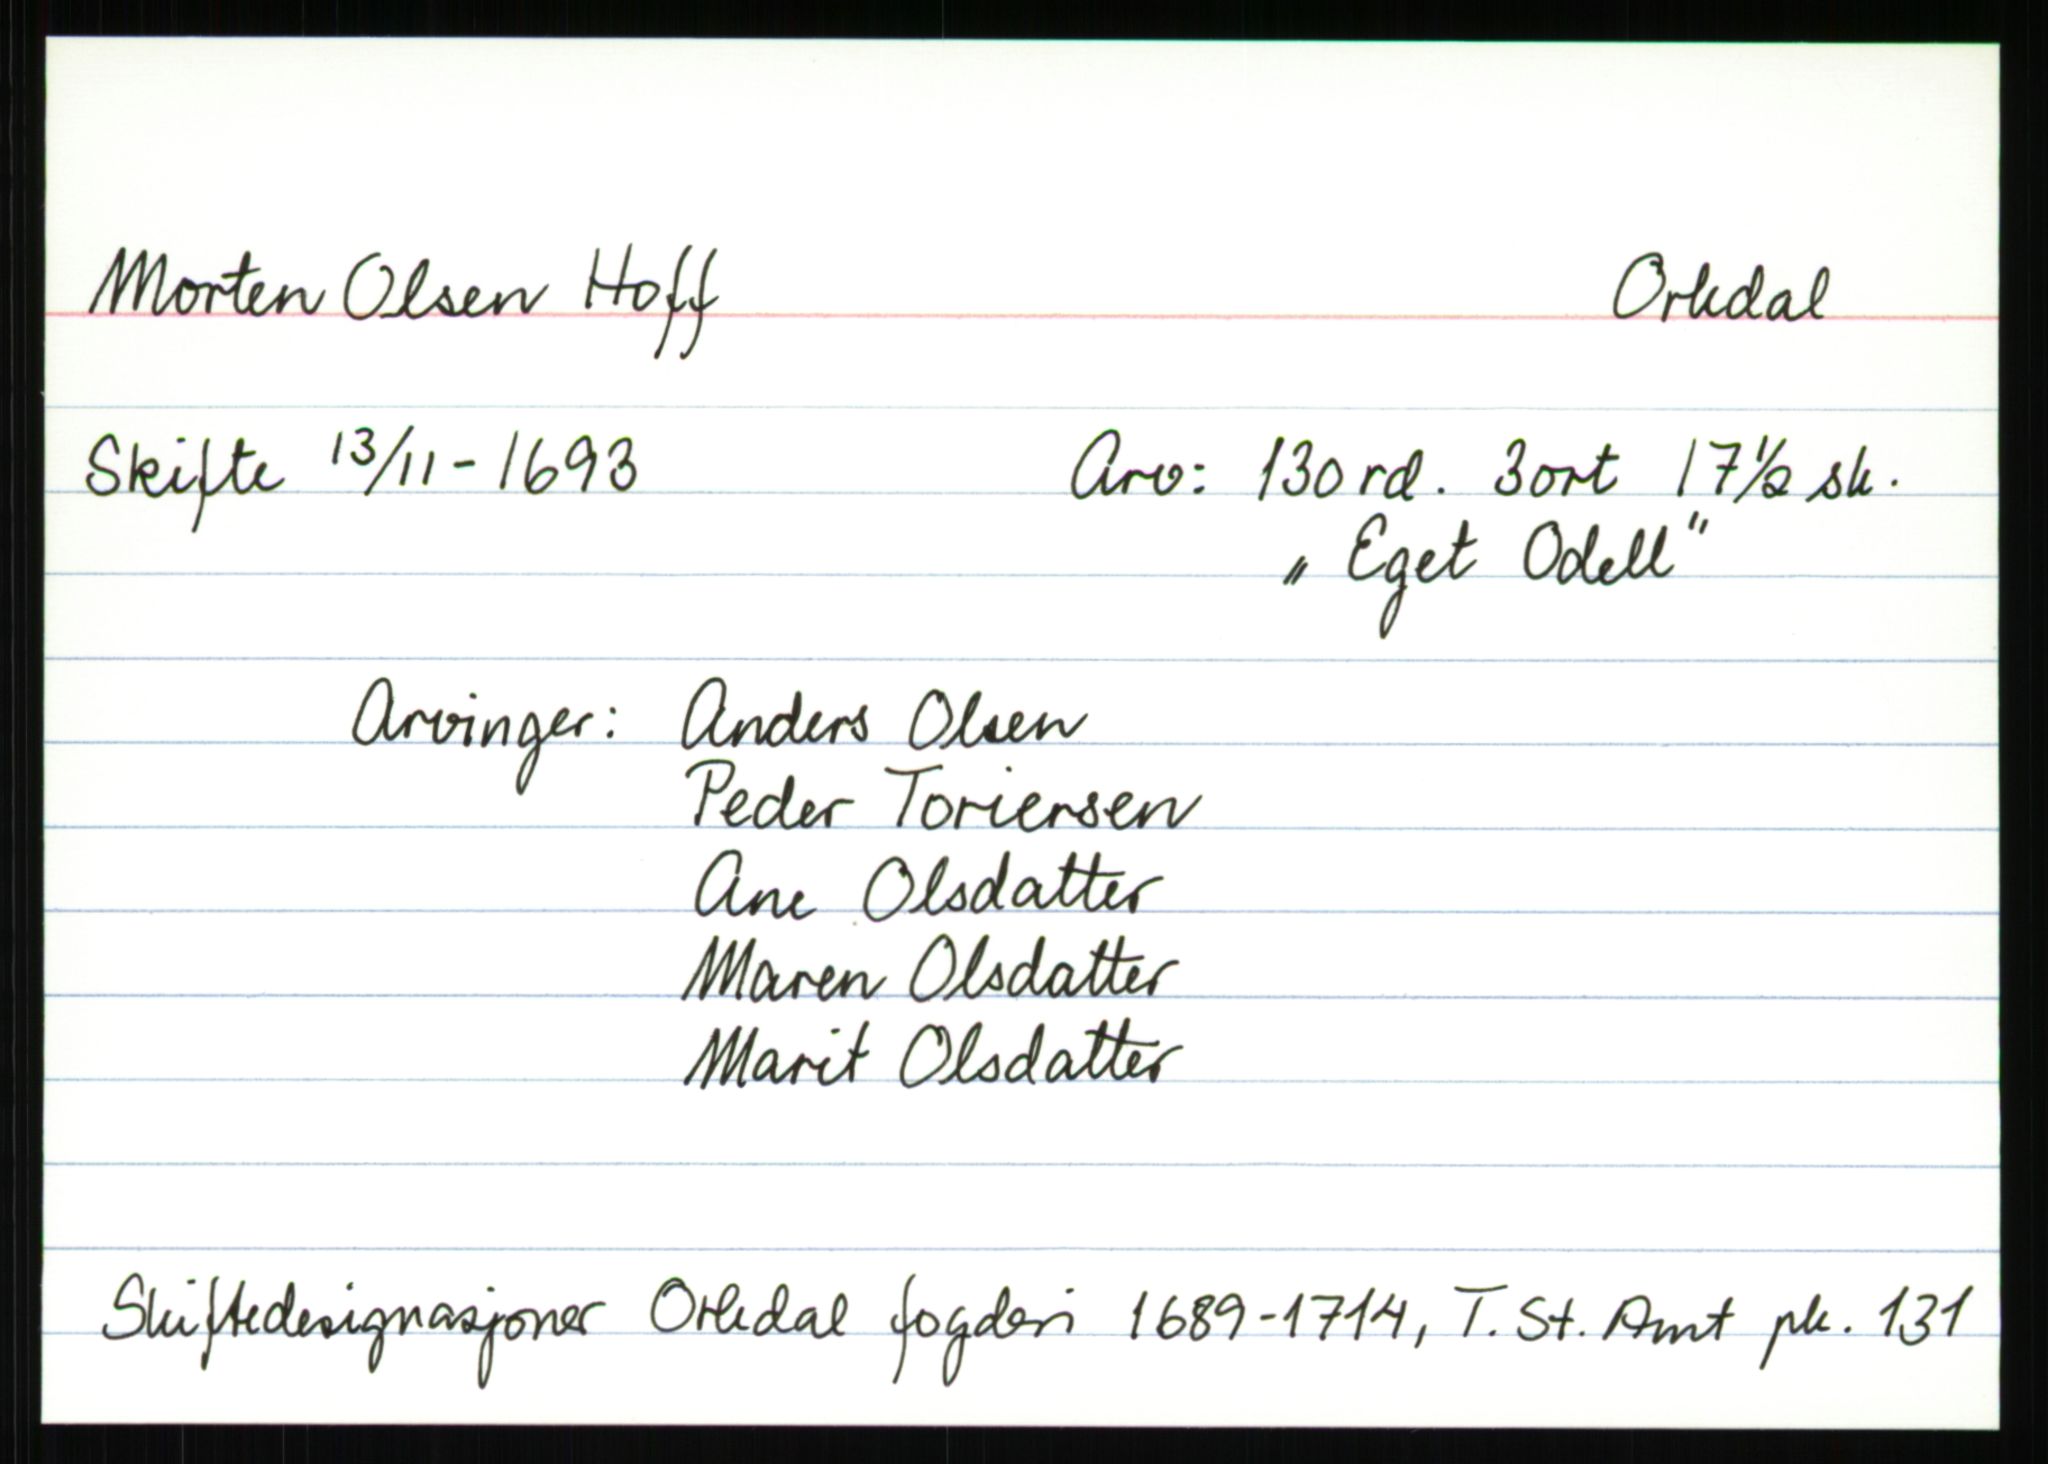 Morten Olsen Hoff Orkdal
Skifte 13/11-1693 Arv: 130 rd. 3 ort 17 1/2 sk.
„Eget Odell"
Arvinger: Anders Olsen
Peder Toriersen
Ane Olsdatter
Maren Olsdatter
Marit Olsdatter
Skiftedesignasjoner Orkdal fogderi 1689-1714, T. St. Amt pk. 131